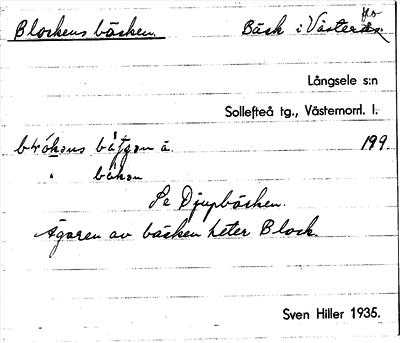 Blockens bäcken. Bäck i Västerås flo
Långsele s:n
Sollefteå tg., Västernorrl. l.
199
" bäken
Se Djupbäcken.
Ägaren av bäcken heter Block.
Sven Hiller 1935.